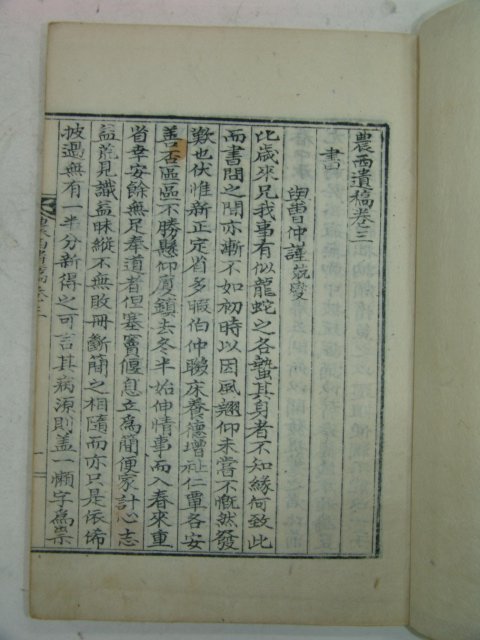 農西遺稿卷三
書
與曺仲謹兢燮
比歲來兄我事有似龍蛇之各蟄其身者不知緣何致此
而書問之間亦漸不如初時以因風翹仰未嘗不慨然發
歎也伏惟新正定省多暇伯仲聯床養德增祉仁覃各安
善否區區不勝懸仰厦鎭去冬半始伸情事而入春來重
省幸安餘無足奉道者但塞竇偃息立爲簡便家計心志
益荒見識益昧縱不無敗冊斷簡之相隨而亦只是依俙
披過無有一半分新得之可言其病源則盖一懶字爲祟
農西遺稿卷三